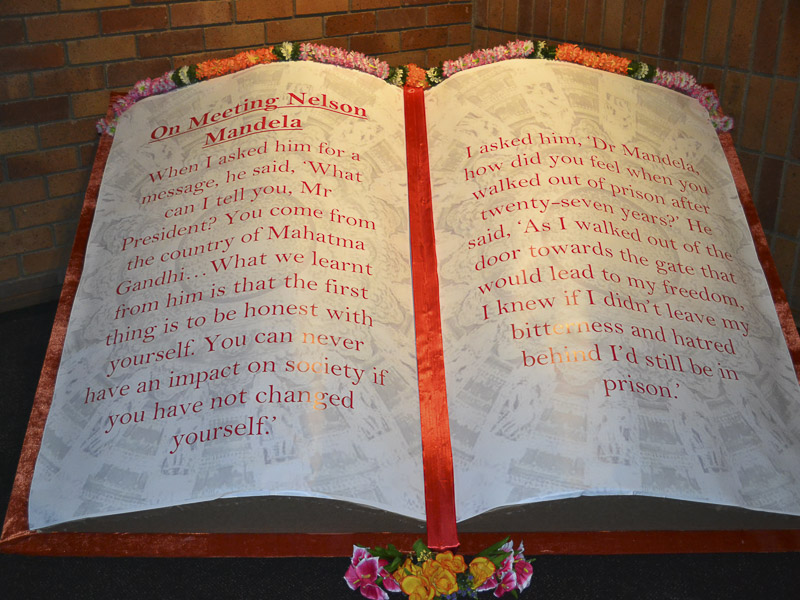 On Meeting Nelson
Mandela
When I asked him for a
message, he said, ‘What
can I tell you, Mr
President? You come from
the country of Mahatma
Gandhi...What we learnt
from him is that the first
thing is to be honest with
yourself. You can never
have an impact on society if
you have not changed
yourself.’
I asked him, ‘Dr Mandela,
how did you feel when you
walked out of prison after
twenty-seven years?’ He
said, ‘As I walked out of the
door towards the gate that
would lead to my freedom,
I knew if I didn’t leave my
bitterness and hatred
behind I’d still be in
prison.’